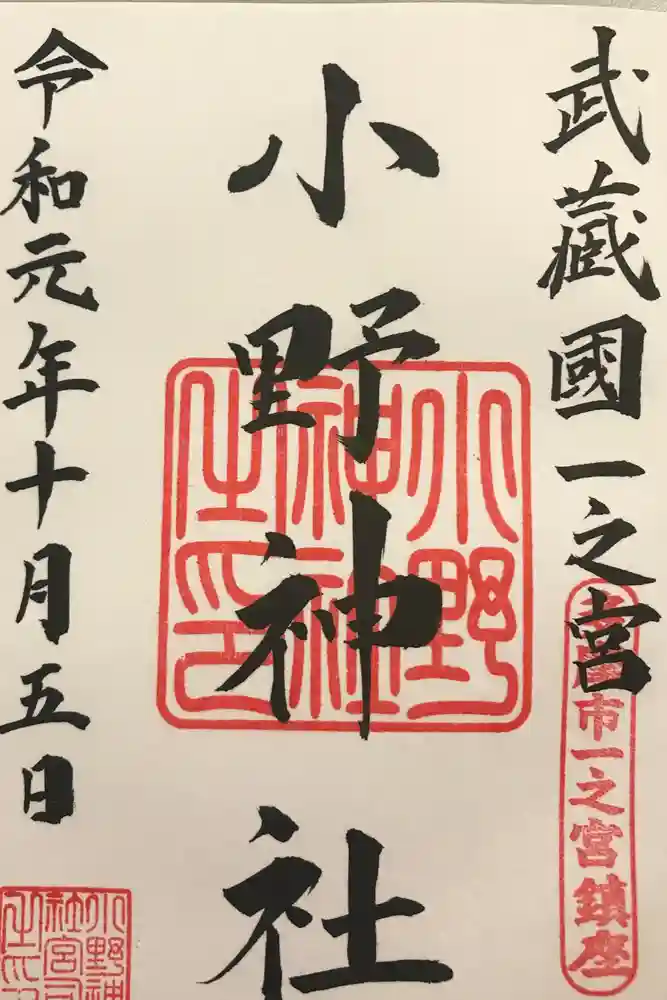 武蔵國一之宮
多摩市一之宮鎮座
小野神社
小野
神社
之印
令和元年十月五日
小野神
社宮司
之印